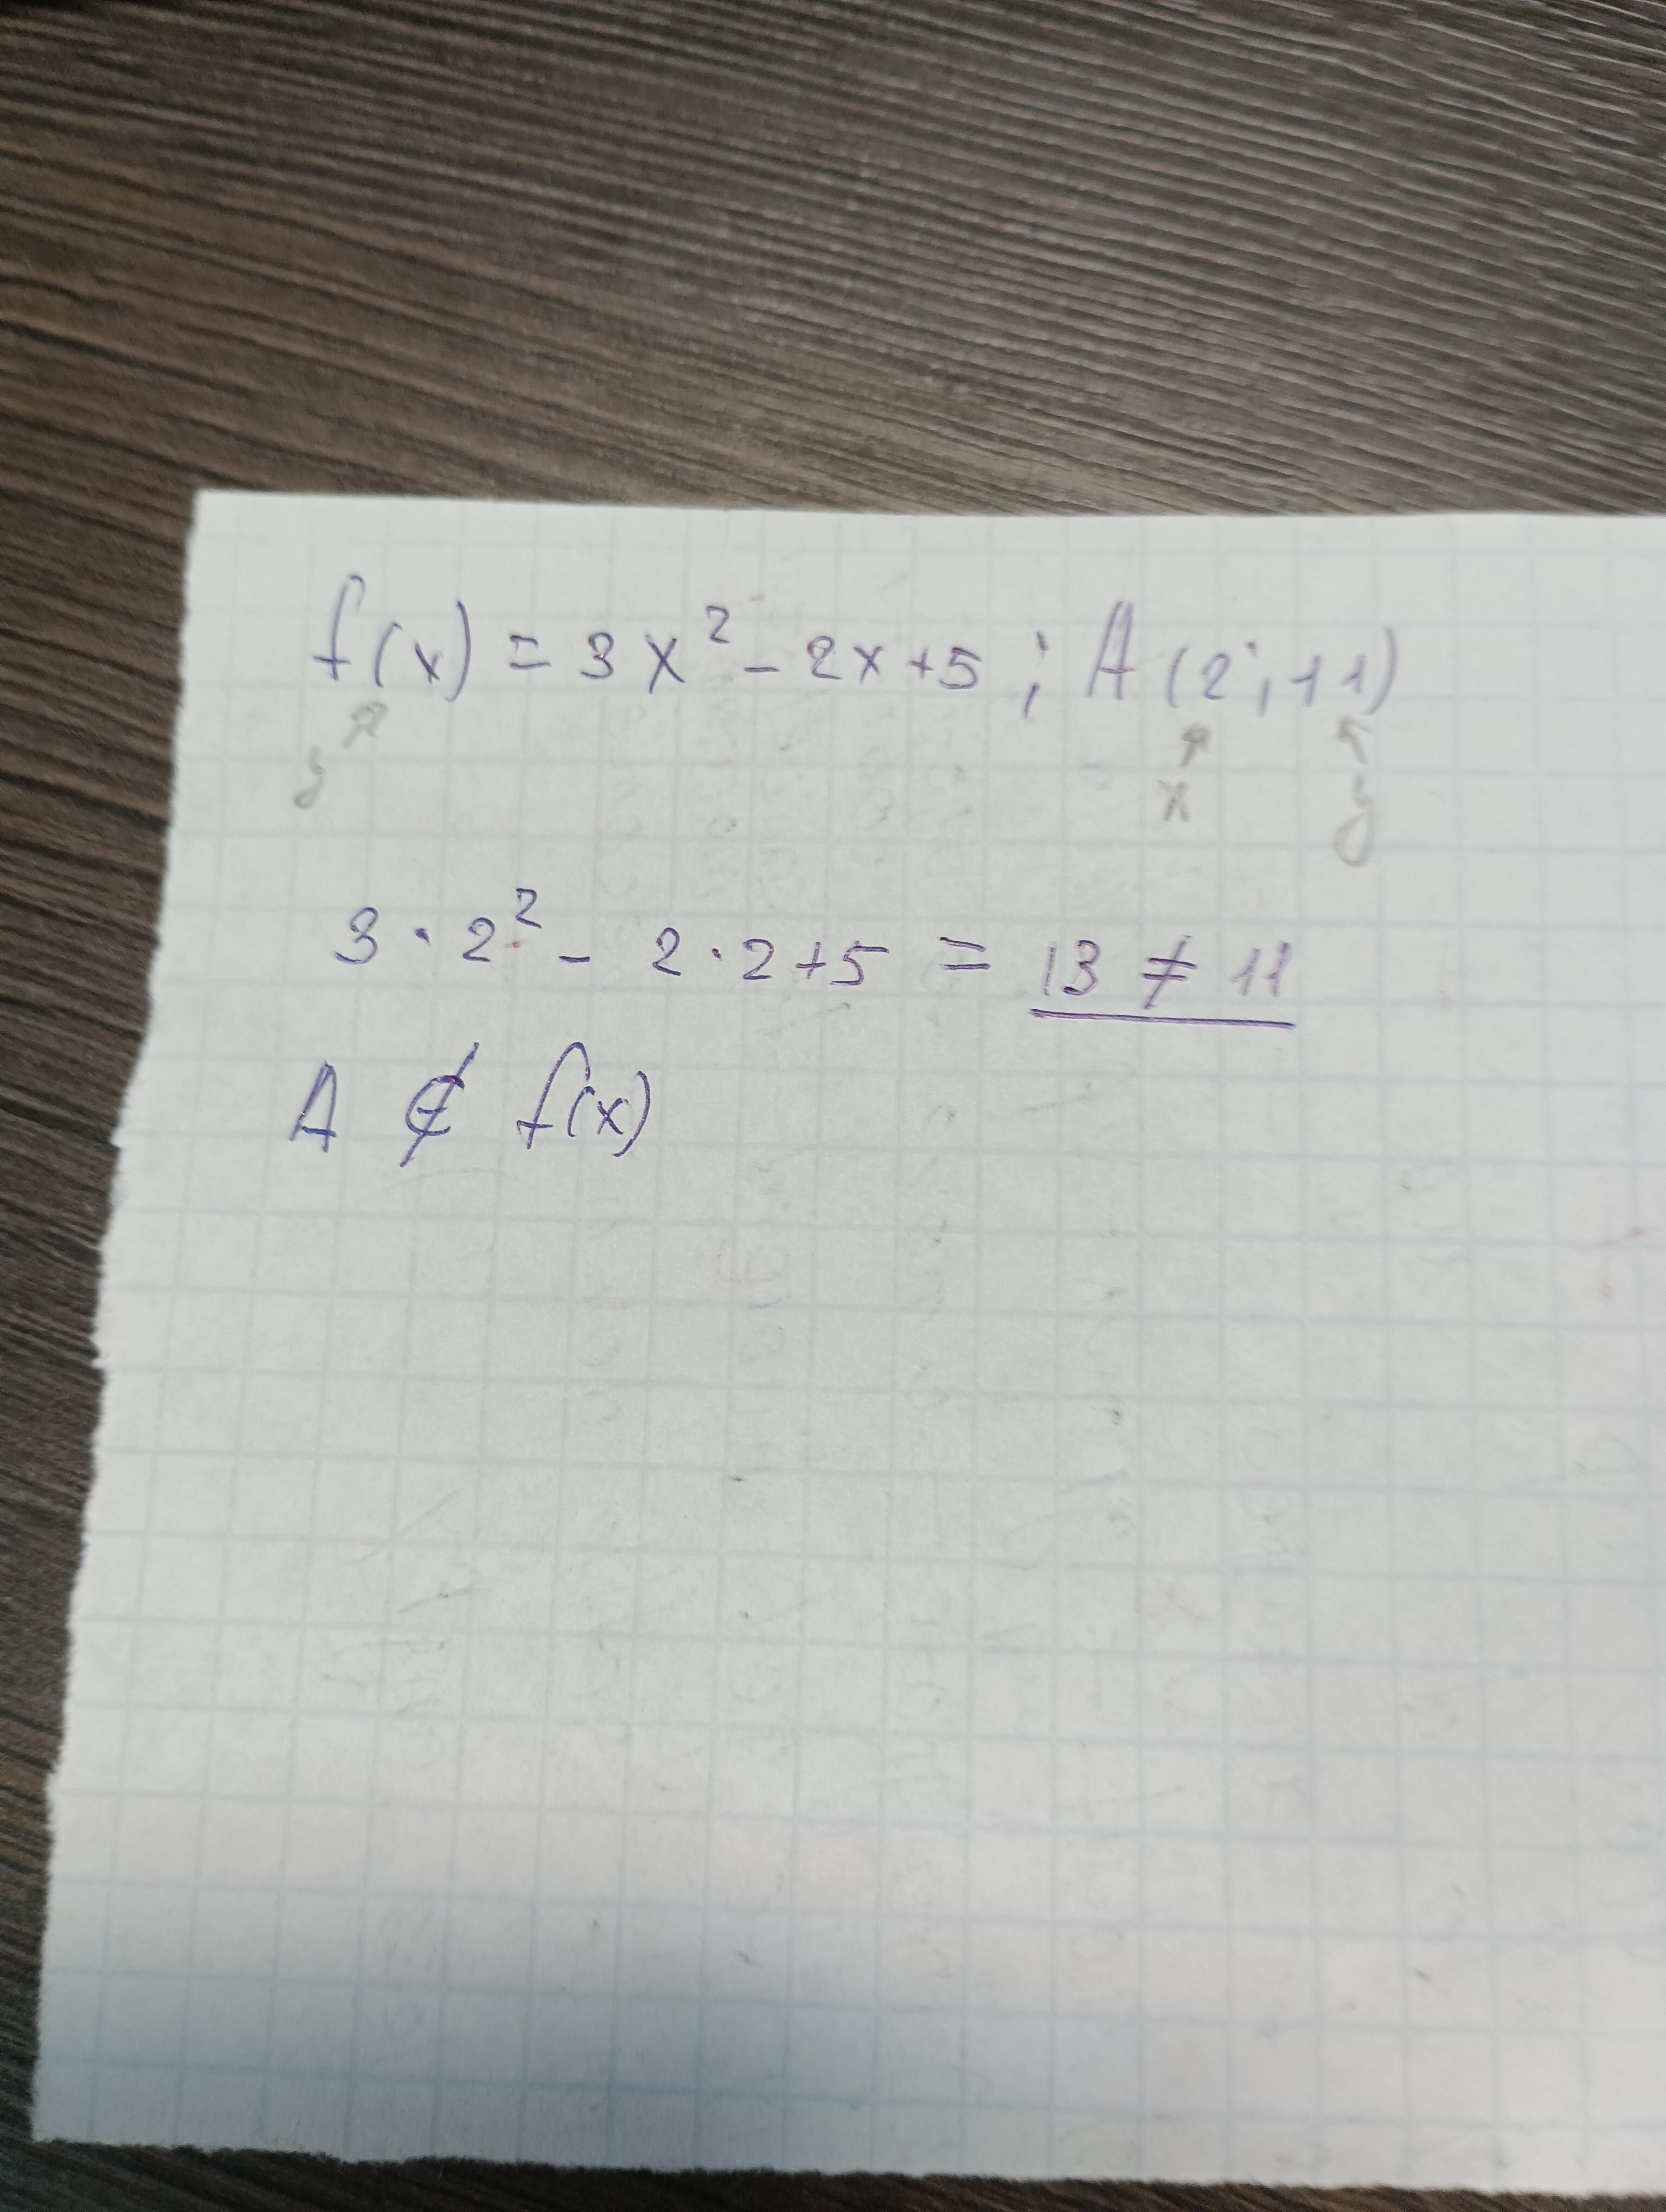 f(x) = 3x² - 2x + 5 ; A (2 ; 11)
y x y
3 · 2² - 2 · 2 + 5 = 13 ≠ 11
A ∉ f(x)